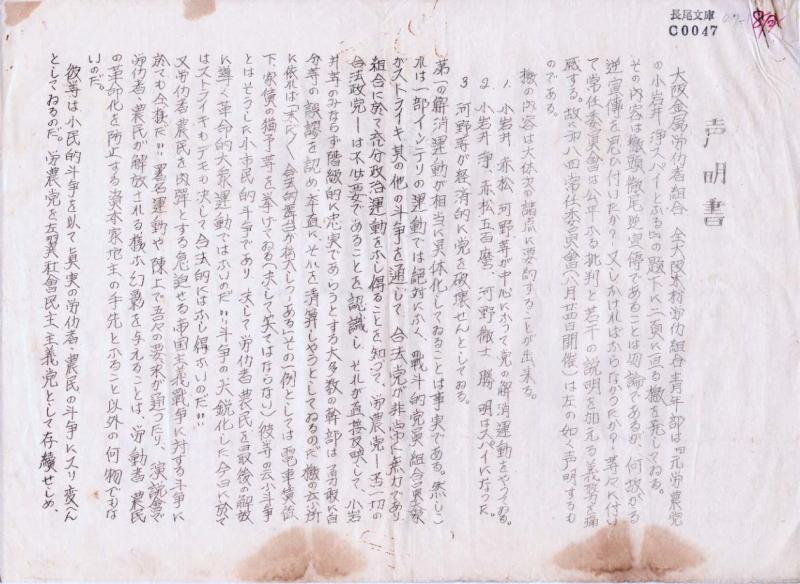 長尾文庫
C0047
声明書
大阪金属労仂者組合 全大阪木材労仂組合青年部は「元労農党
の小岩井 浄スパイとなる」の題下に二頁に亘る檄を発してゐる。
その内容は徹頭徹尾逆宣傳であることは勿論であるが、何故かゝる
逆宣傳を思ひ付いたか？又しかければならなかつたか？等々に付い
て常任委員會は公平なる批判と若干の説明を加える義務を痛
感する。故に第八回常任委員會(八月廿四日開催)は左の如く声明するも
のである。
檄の内容は大体次の諸点に要約することが出来る。
1. 小岩井 赤松 河野等が中心となつて党の解消運動をやつてゐる。
2. 小岩井 浄 赤松五百麿、河野徹士 勝 明はスパイになつた。
3. 河野等が経済的に党を破壊せんとしてゐる。
第一の解消運動が相当に具体化してゐることは事実である。然しこ
れは一部インテリの運動では絶対になく、戦斗的党員組合員大衆
がストライキ其の他の斗争を通じて、合法党が非常に無力であり、
組合に於て充分政治運動をなし得ることを知つて、労農党―否一切の
合法政党―は不必要であることを認識し、それが直接反映して、小岩
井等のみならず階級的に忠実であらうとする大多数の幹部は勇敢に自
分等の誤謬を認め率直にそれを清算しやうとしてゐるのだ。檄の云ふ所
に依れば「未だ〱合法的舞台が拡大しつゝある」その一例としては電車賃値
下、家賃の猶予等を挙げてゐる(決して笑てはならない)彼等の云ふ斗争
とはそうした小市民的斗争であり、決して労仂者農民を最後の解放
に導く革命的大衆運動ではないのだ!!斗争の尖鋭化した今日に於て
はストライキもデモも決して合法的にはなし得ないのだ!!
又労仂者農民を肉弾とする急迫せる帝国主義戦争に対する斗争に
於ても今様だ!!署名運動や陳上で吾々の要求が通つたり、演説會で
労仂者・農民が解放される様な幻影を与えることは、労仂者 農民
の革命化を防止する資本家地主の手先となること以外の何物でもな
いのだ。
彼等は小民的斗争を以て真実の労仂者・農民の斗争にスリ変へん
としてゐるのだ。労農党を左翼社會民主々義党として存績せしめ、